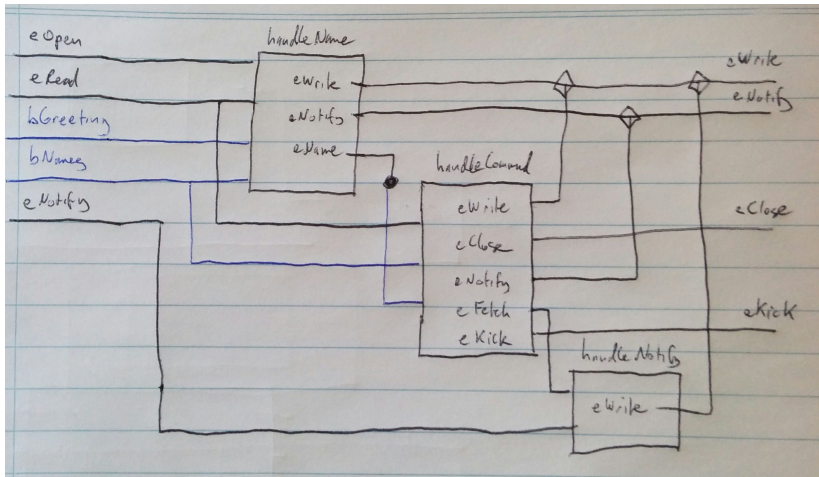 eOpen
eRead
bGreeting
bNames
eNotify
handleName
eWrite
eNotify
eName
handleCommand
eWrite
eClose
eNotify
eFetch
eKick
handleNotify
eWrite
eWrite
eNotify
eClose
eKick